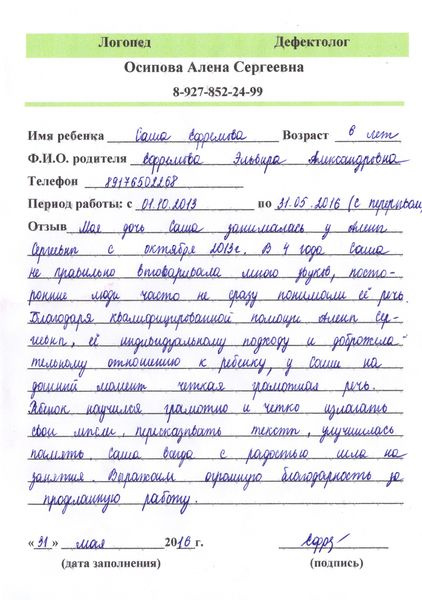 Логопед Дефектолог
Осипова Алена Сергеевна
8-927-852-24-99
Имя ребенка Саша Ефремова Возраст 6 лет
Ф.И.О. родителя Ефремова Эльвира Александровна
Телефон 89176502268
Период работы: с 01.10.2013 по 31.05.2016 (с перерывам
Отзыв Моя дочь Саша занималась у Алены
Сергеевны с октября 2013г. В 4 года Саша
не правильно выговаривала много звуков, посто-
ронние люди часто не сразу понимали её речь.
Благодаря квалифицированной помощи Алены Сер-
геевны, её индивидуальному подходу и доброжела-
тельному отношению к ребенку, у Саши на
данный момент четкая грамотная речь.
Ребенок научился грамотно и четко излагать
свои мысли, пересказывать тексты, улучшилась
память. Саша всегда с радостью шла на
занятия. Выражаем огромную благодарность за
проделанную работу.
«31» мая 2016г.
(дата заполнения) (подпись)